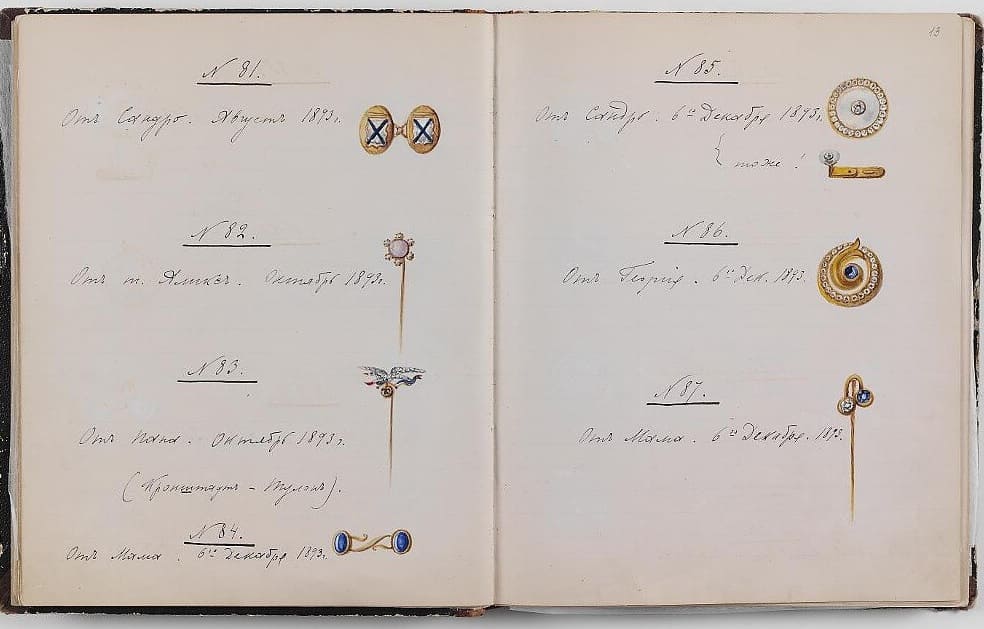 N 81.
Отъ Сандро. Августъ 1893г.
N 82.
Отъ т. Аликсъ. Октябрь 1893г.
N 83.
Отъ Папа. Октябрь 1893г.
(Кронштадтъ - Тулонъ).
N 84.
Отъ Мама. 6го Декабря 1893г.
13
N 85.
Отъ Сандро. 6го Декабря 1893г.
тоже!
N 86.
Отъ Георгія. 6го Дек. 1893.
N 87.
Отъ Мама. 6го Декабря. 1893.